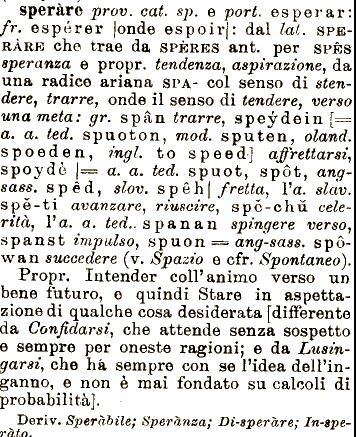 speràre prov. cat. sp. e port. esperar:
fr. espérer [onde espoir]: dal lat. SPE-
RÀRE che trae da SPÈRES ant. per SPÊS
speranza e propr. tendenza, aspirazione, da
una radice ariana SPA- col senso di sten-
dere, trarre, onde il senso di tendere, verso
una meta: gr. spân trarre, speýdein [=
a. a. ted. spuoton, mod. sputen, oland.
spoeden, ingl. to speed] affrettarsi,
spoydè [= a. a. ted. spuot, spôt, ang-
sass. spêd, slov. spêh] fretta, l'a. slav.
spĕ-ti avanzare, riuscire, spĕ-chŭ cele-
rità, l'a. a. ted.. spanan spingere verso,
spanst impulso, spuon = ang-sass. spô-
wan succedere (v. Spazio e cfr. Spontaneo).
Propr. Intender coll'animo verso un
bene futuro, e quindi Stare in aspetta-
zione di qualche cosa desiderata [differente
da Confidarsi, che attende senza sospetto
e sempre per oneste ragioni; e da Lusin-
garsi, che há sempre con se l'idea dell'in-
ganno, e non è mai fondato su calcoli di
probabilità].
Deriv. Speràbile; Sperànza; Di-speràre; In-spe-
ràto.